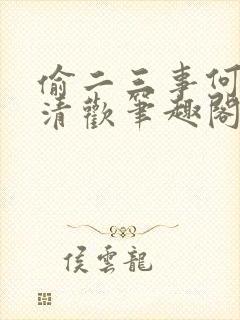 偷二三事何
清歡筆趣閣
侯雲龍